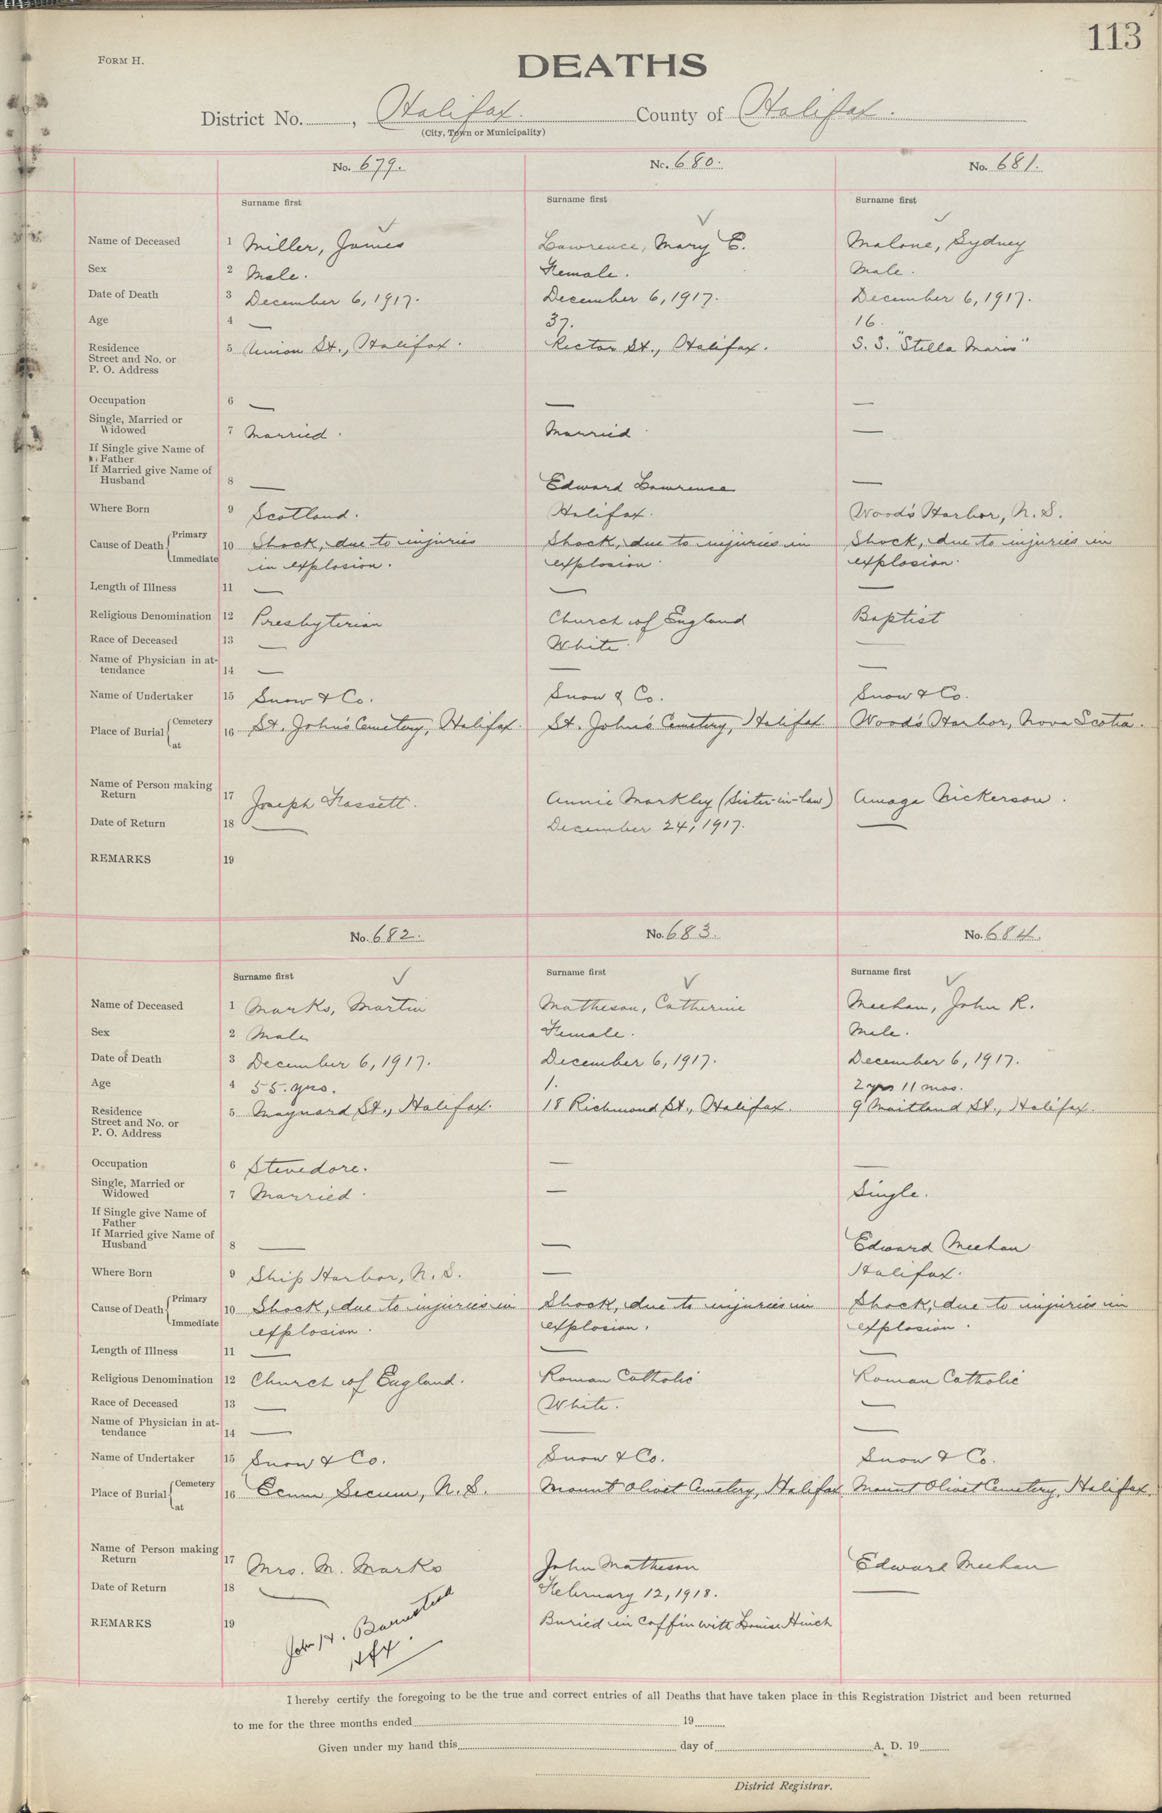 113
FORM H.
DEATHS
District No. , Halifax. County of Halifax.
(City, Town or Municipality)
No. 679. No. 680. No. 681.
Surname first Surname first Surname first
Name of Deceased 1 Miller, James Lawrence, Mary E. Malone, Sydney
Sex 2 Male. Female. Male.
Date of Death 3 December 6, 1917. December 6, 1917. December 6, 1917.
Age 4 — 37. 16.
Residence 5 Union St., Halifax. Rector St., Halifax. S. S. "Stella Maris"
Street and No. or
P. O. Address
Occupation 6 — — —
Single, Married or
Widowed 7 Married. Married —
If Single give Name of
Father
If Married give Name of
Husband 8 — Edward Lawrence —
Where Born 9 Scotland. Halifax. Wood's Harbor, N. S.
Cause of Death { Primary Immediate 10 Shock, due to injuries Shock, due to injuries in Shock, due to injuries in
in explosion. explosion. explosion.
Length of Illness 11 — — —
Religious Denomination 12 Presbyterian Church of England Baptist
Race of Deceased 13 — White. —
Name of Physician in at-
tendance 14 — — —
Name of Undertaker 15 Snow & Co. Snow & Co. Snow & Co.
Place of Burial { Cemetery at 16 St. John's Cemetery, Halifax. St. John's Cemetery, Halifax Wood's Harbor, Nova Scotia.
Name of Person making
Return 17 Joseph Fassett. Annie Markley (Sister-in-law) Nickerson.
Date of Return 18 — December 24, 1917. —
REMARKS 19
No. 682. No. 683. No. 684.
Surname first Surname first Surname first
Name of Deceased 1 Marks, Martin Matheson, Catherine Meehan, John R.
Sex 2 Male Female. Male.
Date of Death 3 December 6, 1917. December 6, 1917. December 6, 1917.
Age 4 55 yrs. 1. 2 yrs 11 mos.
Residence 5 Maynard St., Halifax. 18 Richmond St., Halifax. 9 Maitland St., Halifax.
Street and No. or
P. O. Address
Occupation 6 Stevedore. — —
Single, Married or
Widowed 7 Married. — Single.
If Single give Name of
Father
If Married give Name of
Husband 8 — — Edward Meehan
Where Born 9 Ship Harbor, N. S. — Halifax.
Cause of Death { Primary Immediate 10 Shock, due to injuries in Shock, due to injuries in Shock, due to injuries in
explosion. explosion. explosion.
Length of Illness 11 — — —
Religious Denomination 12 Church of England. Roman Catholic Roman Catholic
Race of Deceased 13 — White. —
Name of Physician in at-
tendance 14 — — —
Name of Undertaker 15 Snow & Co. Snow & Co. Snow & Co.
Place of Burial { Cemetery at 16 Ecum Secum, N. S. Mount Olivet Cemetery, Halifax. Mount Olivet Cemetery, Halifax.
Name of Person making
Return 17 Mrs. M. Marks John Matheson Edward Meehan
Date of Return 18 — February 12, 1918. —
REMARKS 19 John H. Barnstead Buried in coffin with Louise Hinch
Hfx.
I hereby certify the foregoing to be the true and correct entries of all Deaths that have taken place in this Registration District and been returned
to me for the three months ended 19
Given under my hand this day of A. D. 19
District Registrar.